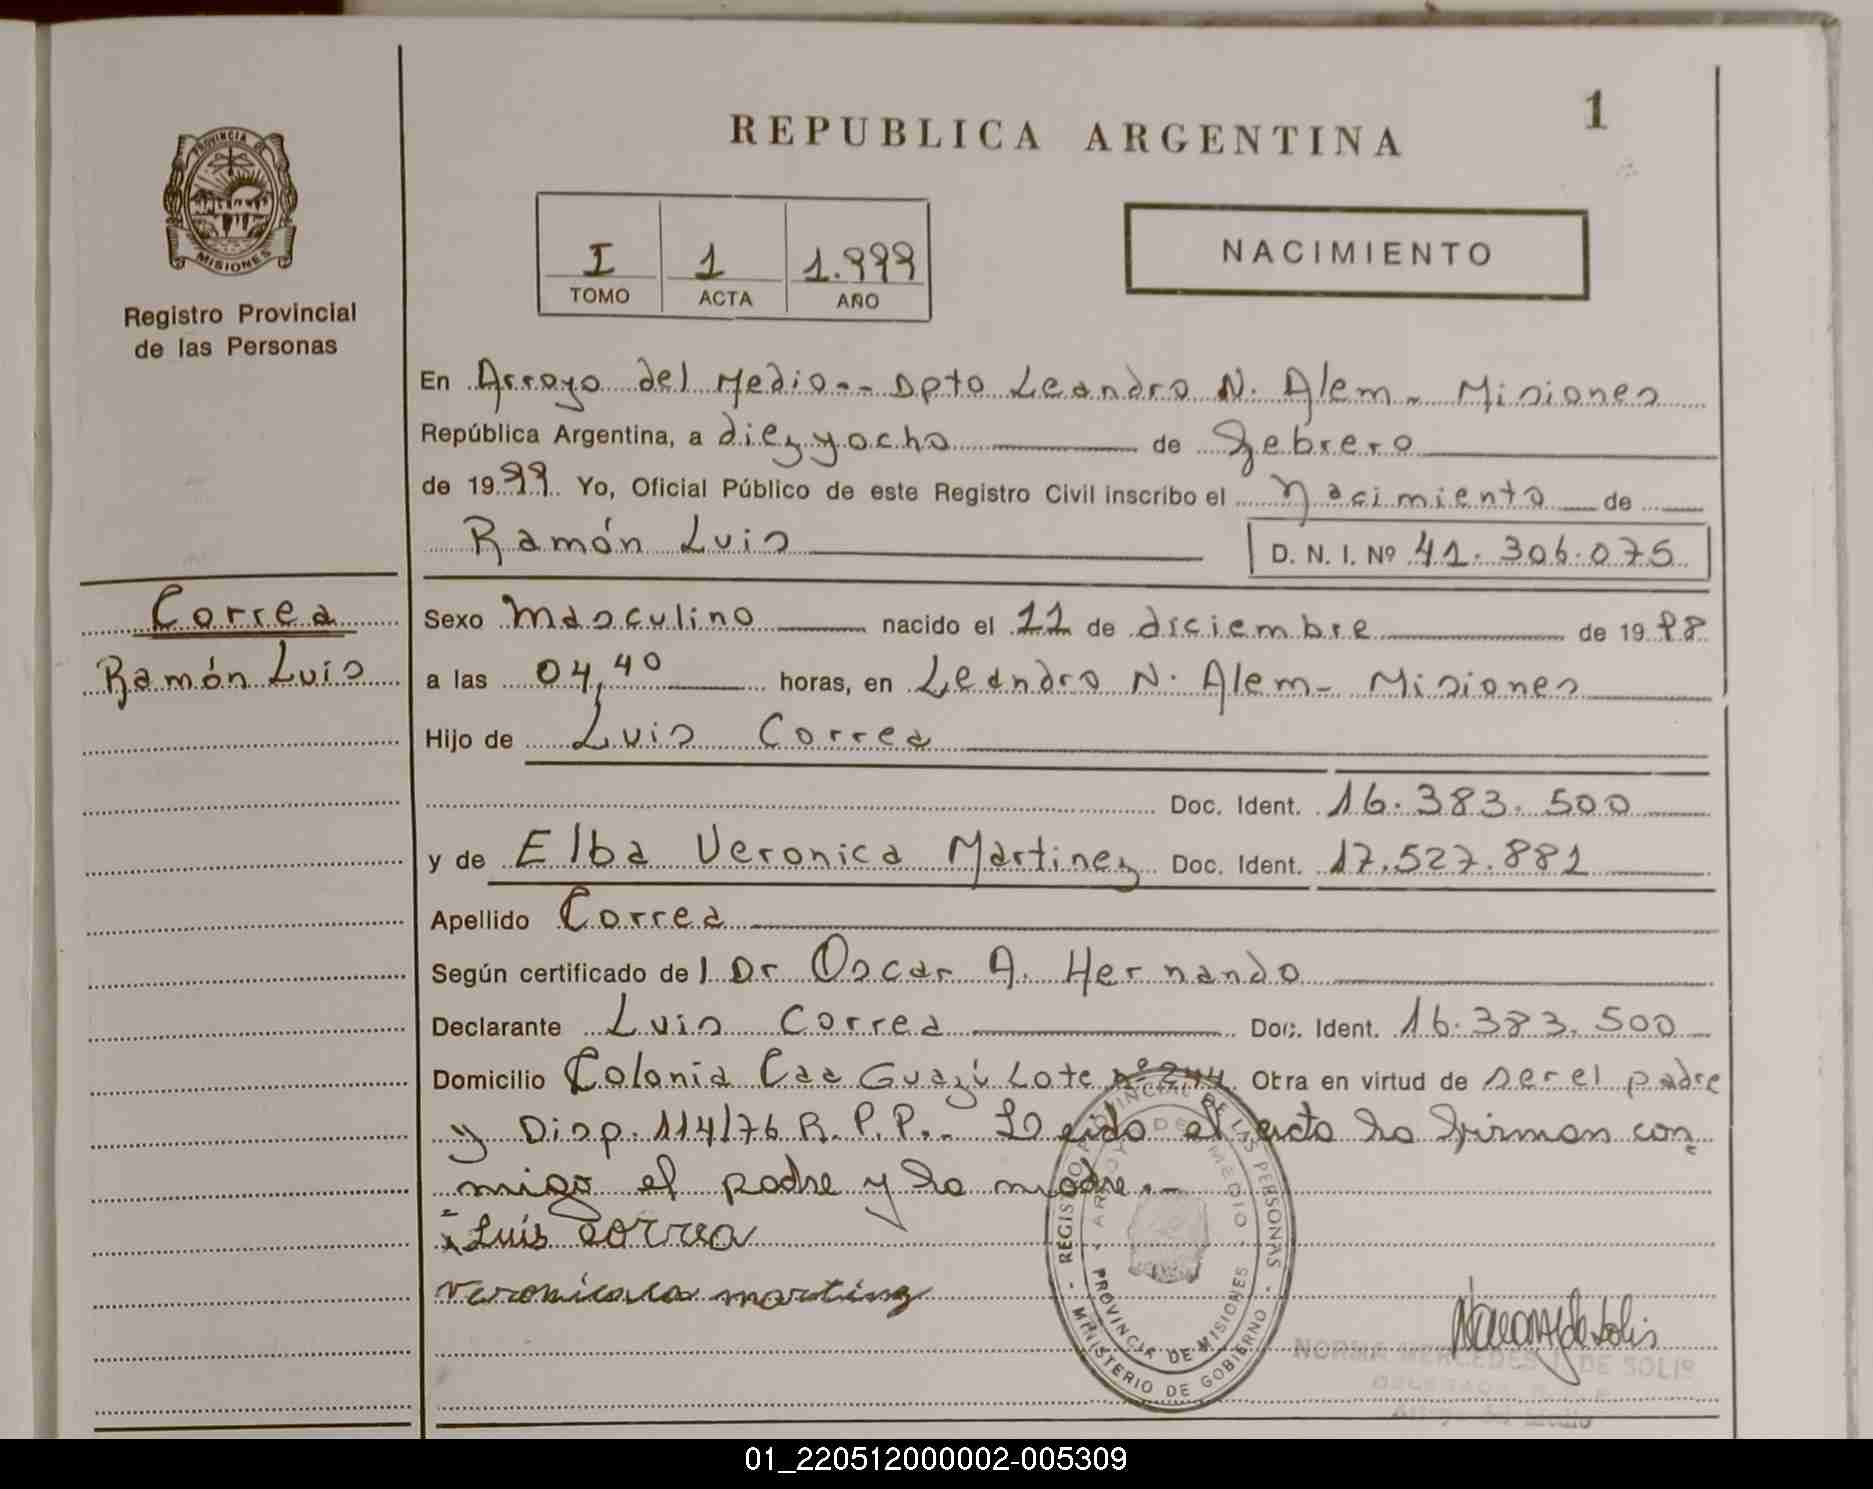 REPUBLICA ARGENTINA
1
PROVINCIA DE
MISIONES
Registro Provincial
de las Personas
I 1 1.999
TOMO ACTA AÑO
NACIMIENTO
En Arroyo del Medio-- Dpto Leandro N. Alem - Misiones
República Argentina, a diez y ocho de Febrero
de 1999 Yo, Oficial Público de este Registro Civil inscribo el Nacimiento de
Ramón Luis D. N. I. Nº 41.306.075
Correa
Ramón Luis
Sexo Masculino nacido el 11 de diciembre de 1998
a las 04,40 horas, en Leandro N. Alem - Misiones
Hijo de Luis Correa
Doc. Ident. 16.383.500
y de Elba Veronica Martinez Doc. Ident. 17.527.881
Apellido Correa
Según certificado de l Dr Oscar A. Hernando
Declarante Luis Correa Doc. Ident. 16.383.500
Domicilio Colonia Caa Guazú Lote nº 244 Obra en virtud de ser el padre
y Disp. 114/76 R.P.P.- Leida el acta la firman con=
migo el padre y la madre.-
Luis Correa
martinez
REGISTRO PROVINCIAL DE LAS PERSONAS
MINISTERIO DE GOBIERNO
ARROYO DEL MEDIO
PROVINCIA DE MISIONES
de Solis
NORMA MERCEDES J. DE SOLIS
Arroyo del Medio
01_220512000002-005309